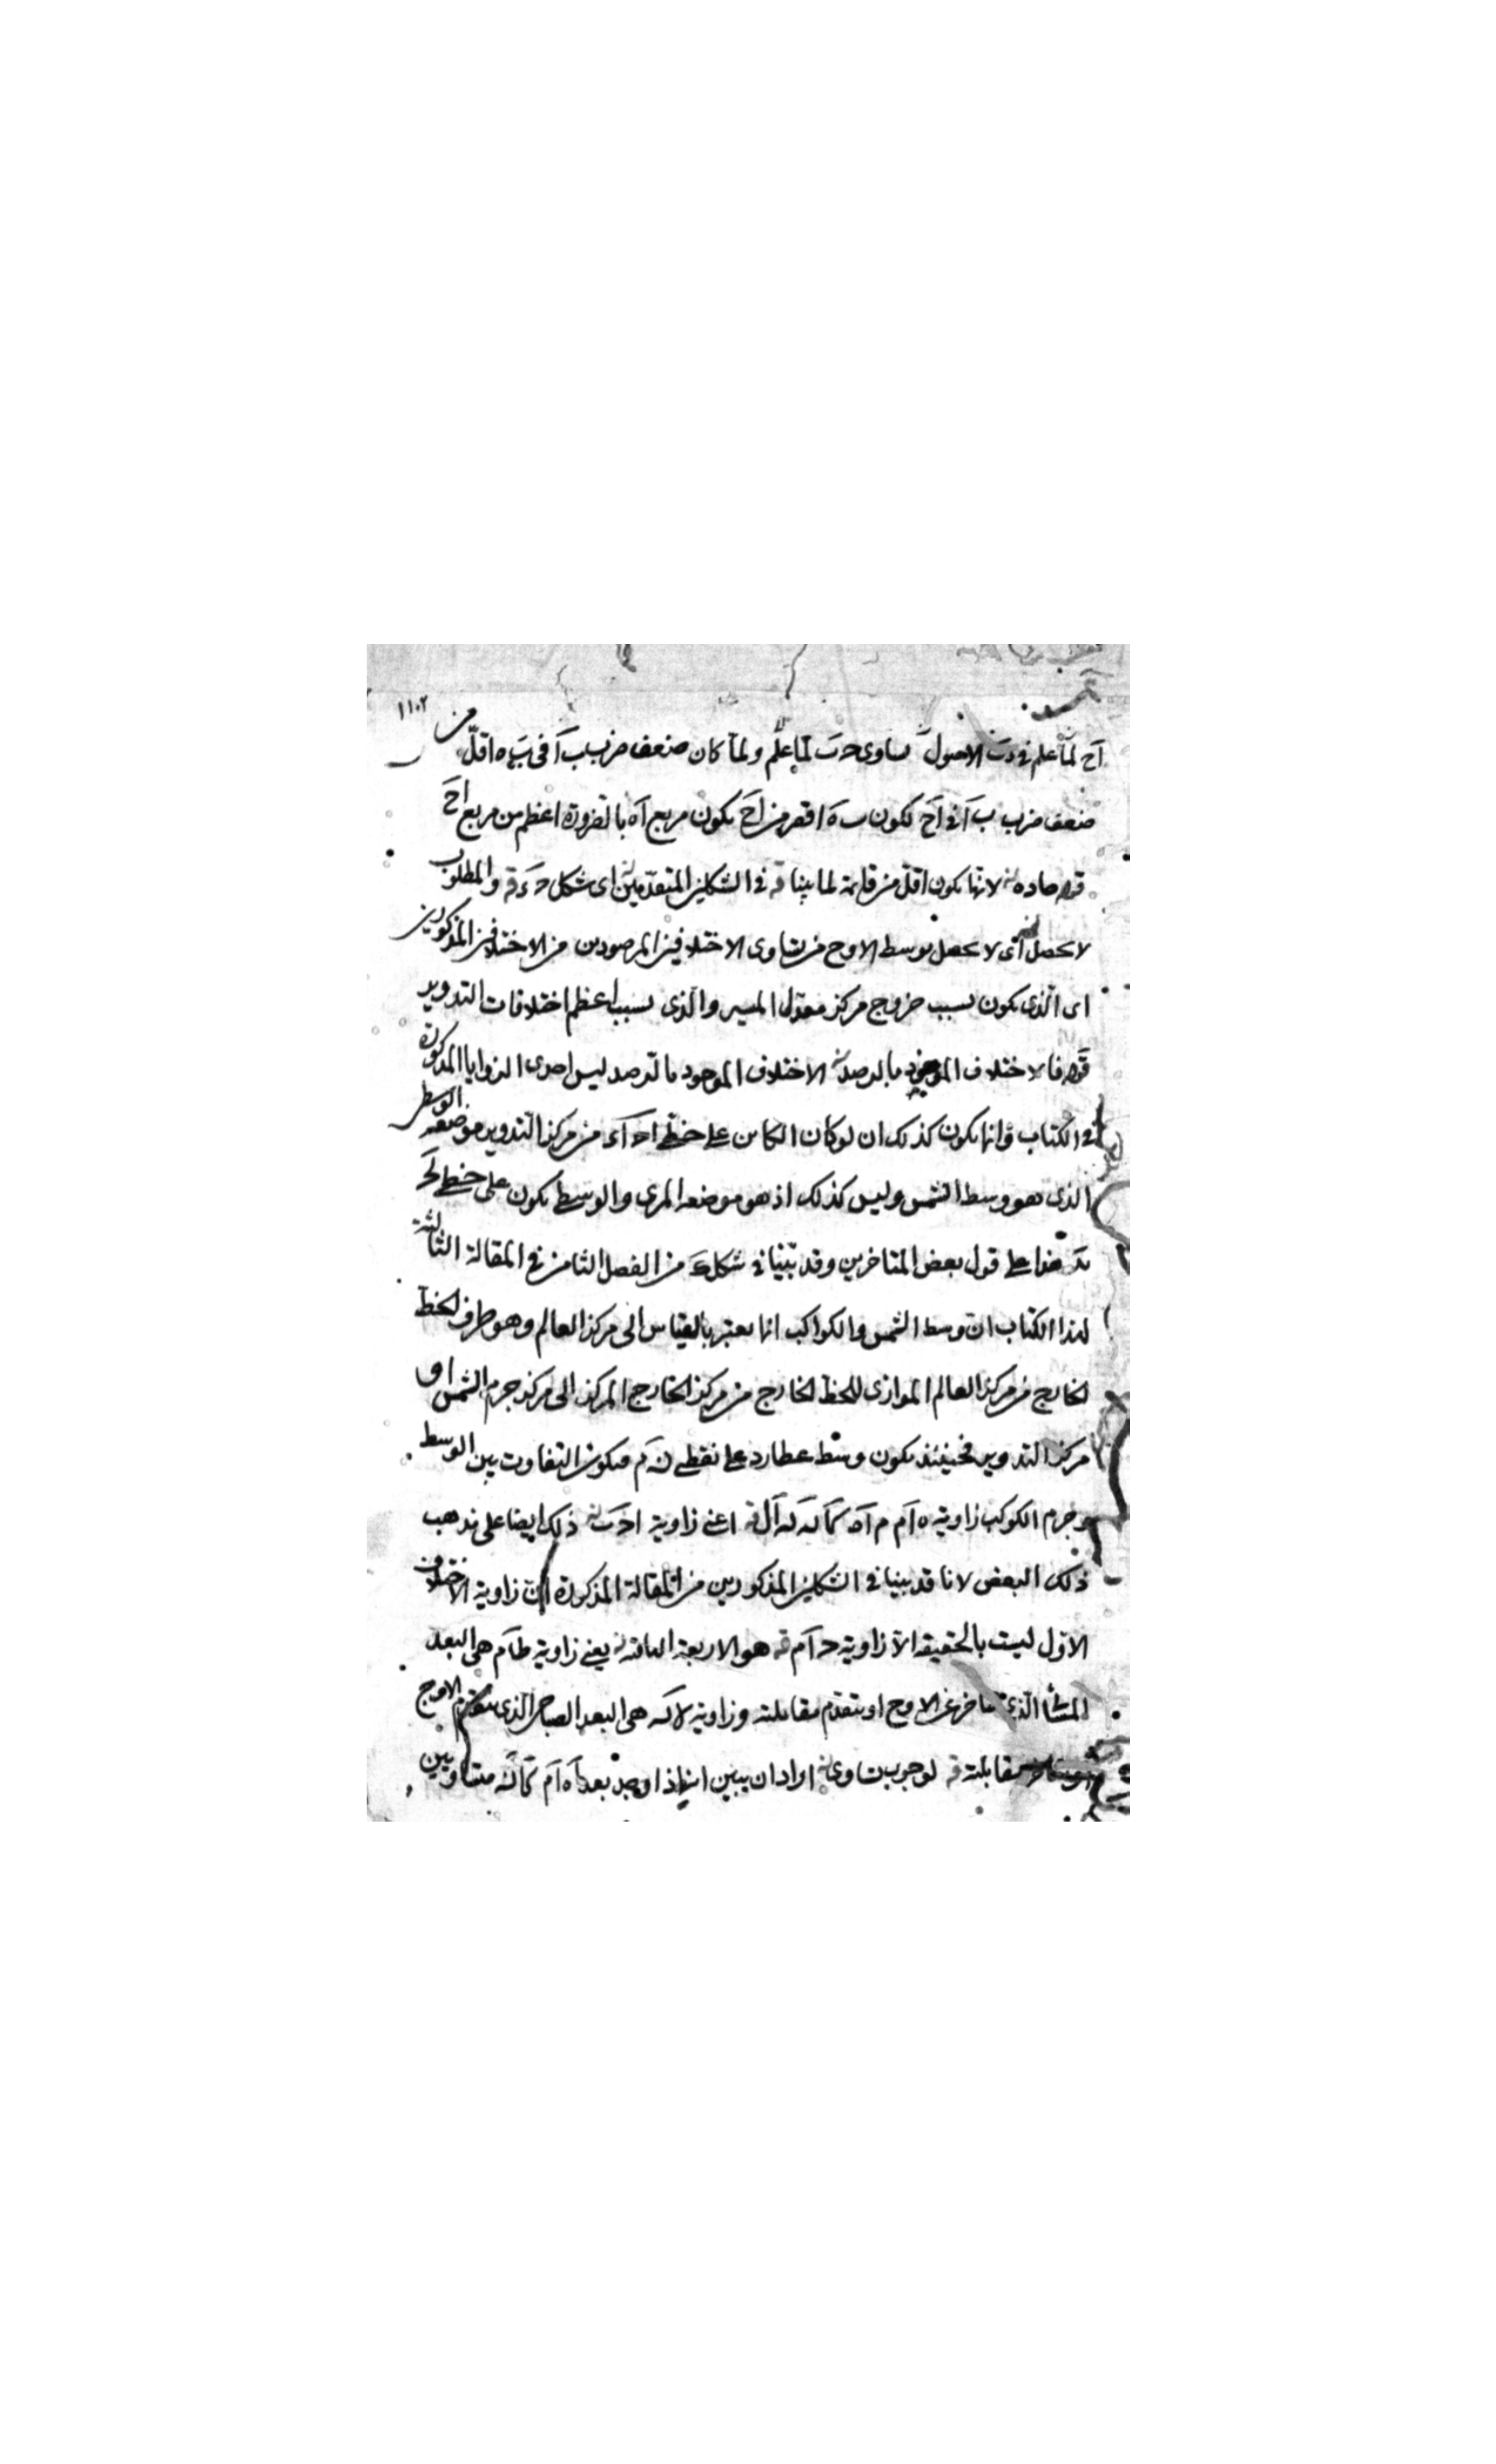 ١١٠٢
اَحَ لما علم في دَتَ الاصول يساوى حَ تَ لما علم ولما كان ضعف ضرب بَ اَ فى بَ ه اقل من
ضعف ضرب بَ اَ فى اَحَ لكون بَ ه اقصر من اَحَ يكون مربع اَه بالضرورة اعظم من مربع اَحَ
قوله حاده لانها يكون اقل من قايمة لما بينا فى الشكلين المتقدمين اى شكل والمطلوب
لا يحصل اى لا يحصل بوسط الاوج من تساوى الاختلافين المرصودين من الاختلافين المذكورين
اى الذى يكون بسبب خروج مركز معدل المسير والذى بسبب اعظم اختلافات التدوير
قوله فالاختلاف الموجود بالرصد الاختلاف الموجود بالرصد ليس احدى الزوايا المذكورة
فى الكتاب وانما يكون كذلك ان لو كان الكاين على خطى من مركز التدوير موضعه الوسط
الذى هو وسط الشمس وليس كذلك اذ هو موضعه المرى والوسط يكون على خطى
هذا على قول بعض المتاخرين وقد بينا فى شكل من الفصل الثامن فى المقالة الثالثة
لهذا الكتاب ان وسط الشمس والكواكب انما يعتبر بالقياس الى مركز العالم وهو طرف الخط
الخارج من مركز العالم الموازى للخط الخارج من مركز الخارج المركز الى مركز جرم الشمس او
مركز التدوير فحينئذ يكون وسط عطارد على نقطى نَ مَ فيكون التفاوت بين الوسط
وجرم الكوكب زاوية ه اَم اعنى زاوية ذلك ايضا على مذهب
ذلك البعض لانا قد بينا فى الشكلين المذكورين من المقالة المذكورة ان زاوية الاختلاف
الاول ليست بالحقيقة الا زاوية حَ اَم هو الاربعة الباقية يعنى زاوية طاَم هى البعد
المسائى الذى يتاخر عن الاوج او يتقدم مقابلته وزاوية هى البعد الصباحى الذى يتقدم الاوج
مقابلته لوجوب تساوى اراد ان يبين انه اذا وجد بعدا متساويين